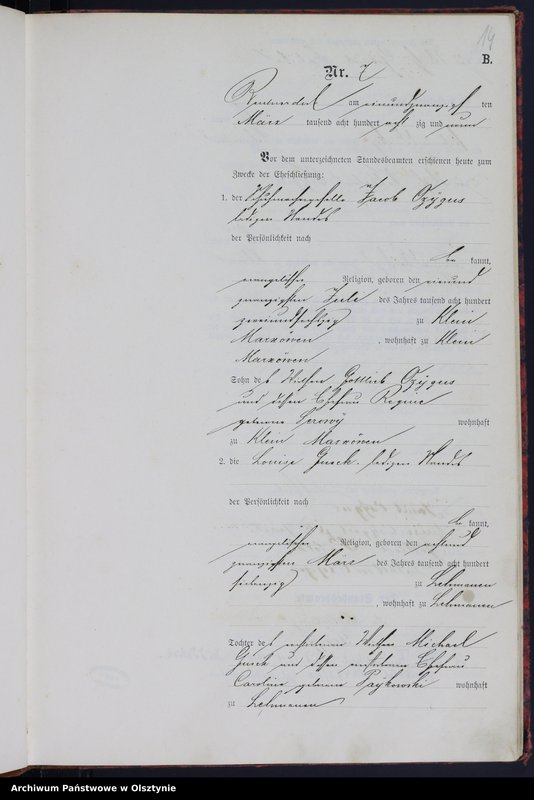 14
B.
Nr. 7
am einundzwanzigsten
März tausend acht hundert acht zig und neun
Vor dem unterzeichneten Standesbeamten erschienen heute zum
Zwecke der Eheschließung:
1. der Schuhmachergeselle Jacob Czygus
ledigen Standes
der Persönlichkeit nach
be kannt,
evangelischer Religion, geboren den einund
zwanzigsten Juli des Jahres tausend acht hundert
zweiundsechszig zu Klein
Marxöwen , wohnhaft zu Klein
Marxöwen
Sohn des Wirthen Gottlieb Czygus
und dessen Ehefrau Regine
geborene wohnhaft
zu Klein Marxöwen
2. die Louise Gusek ledigen Standes
der Persönlichkeit nach
be kannt,
evangelischer Religion, geboren den achtund
zwanzigsten März des Jahres tausend acht hundert
siebenzig zu Lehmanen
, wohnhaft zu Lehmanen
Tochter des verstorbenen Wirthen Michael
Gusek und dessen verstorbene Ehefrau
Caroline geborene Pajkowski wohnhaft
zu Lehmanen
Archiwum Państwowe w Olsztynie